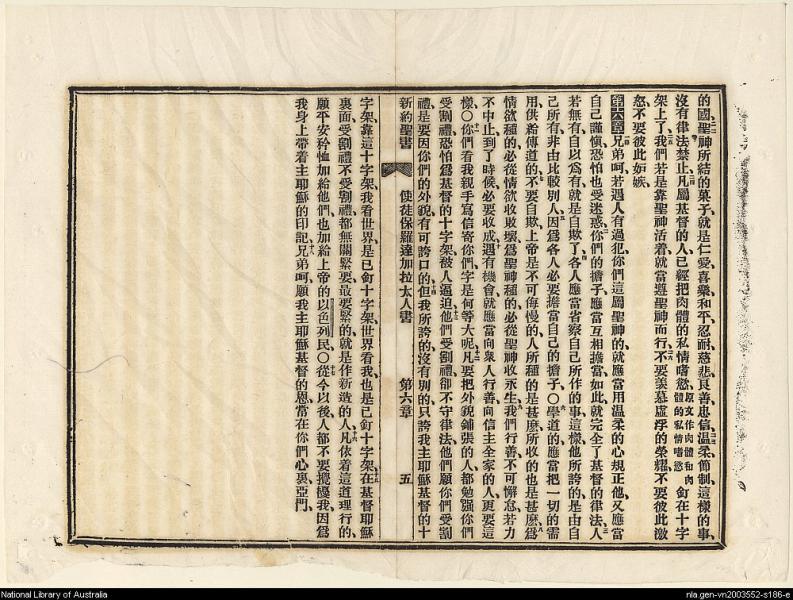 的國聖神所結的菓子就是仁愛喜樂和平忍耐慈悲良善忠信溫柔節制這樣的事
沒有律法禁止凡屬基督的人已經把肉體的私情嗜慾原文作肉體和肉體的私情嗜慾釘在十字
架上了我們若是靠聖神活着就當遵聖神而行不要羨慕虛浮的榮耀不要彼此激
怒不要彼此妬嫉
第六章兄弟呵若遇人有過犯你們這屬聖神的就應當用溫柔的心規正他又應當
自己謹愼恐怕也受迷惑你們的擔子應當互相擔當如此就完全了基督的律法人
若無有自以爲有就是自欺了各人應當省察自己所作的事這樣他所誇的是由自
己所有非由比較別人因爲各人必要擔當自己的擔子○學道的應當把一切的需
用供給傳道的不要自欺上帝是不可侮慢的人所種的是甚麽所收的也是甚麽爲
情欲種的必從情欲收敗壞爲聖神種的必從聖神收永生我們行善不可懈怠若力
不中止到了時候必要收成遇有機會就應當向衆人行善向信主全家的人更要這
樣○你們看我親手寫信寄你們字是何等大呢凡要把外貌鋪張的人都勉强你們
受割禮恐怕爲基督的十字架被人逼迫他們受割禮卻不守律法他們願你們受割
禮是要因你們的外貌有可誇口的但我所誇的沒有別的只誇我主耶穌基督的十
新約聖書 使徒保羅達加拉太人書 第六章 五
字架靠這十字架我看世界是已釘十字架世界看我也是已釘十字架在基督耶穌
裏面受割禮不受割禮都無關緊要最要緊的就是作新造的人凡依着這道理行的
願平安矜恤加給他們也加給上帝的以色列民○從今以後人都不要攪擾我因爲
我身上帶着主耶穌的印記兄弟呵願我主耶穌基督的恩常在你們心裏亞門
National Library of Australia
nla.gen-vn2003552-s186-e